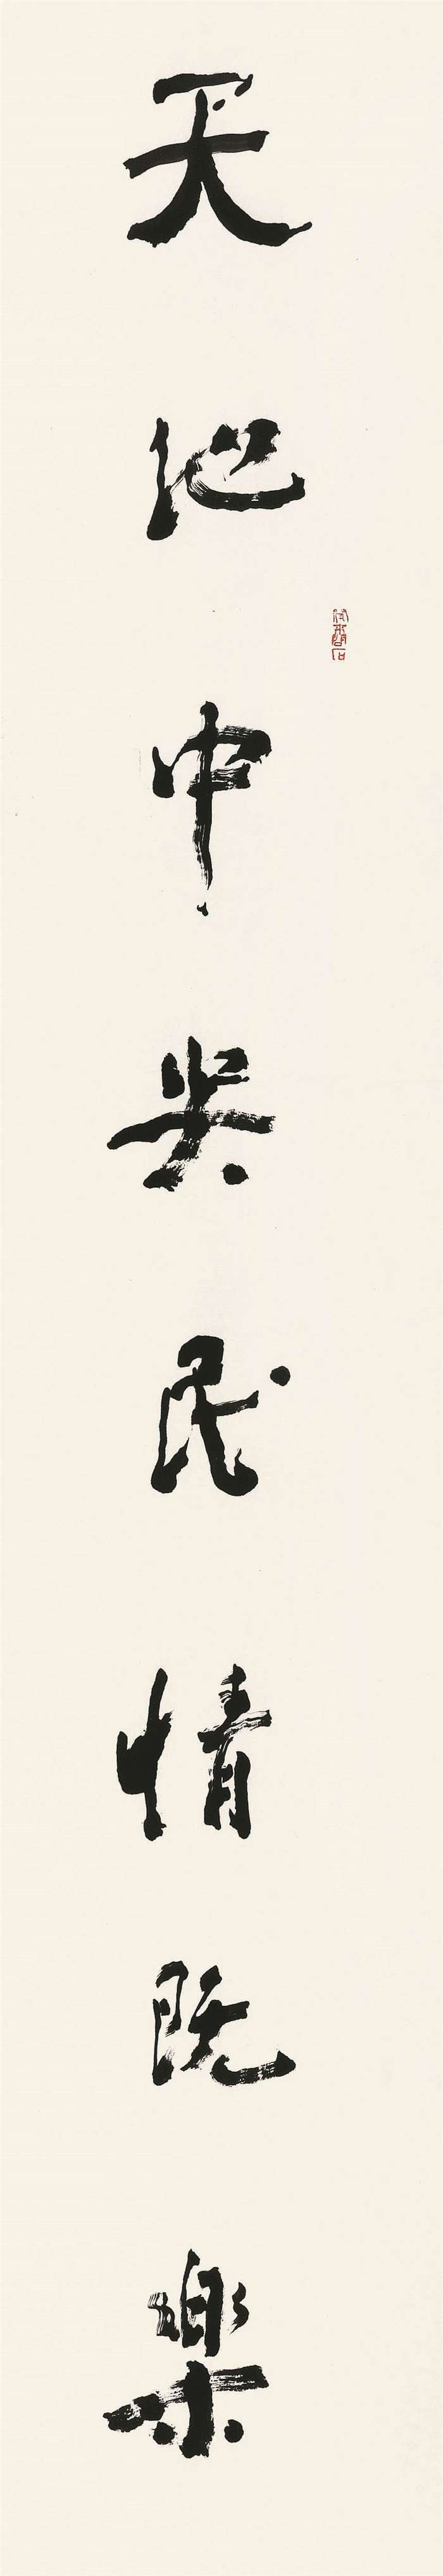 天地中央民情既樂